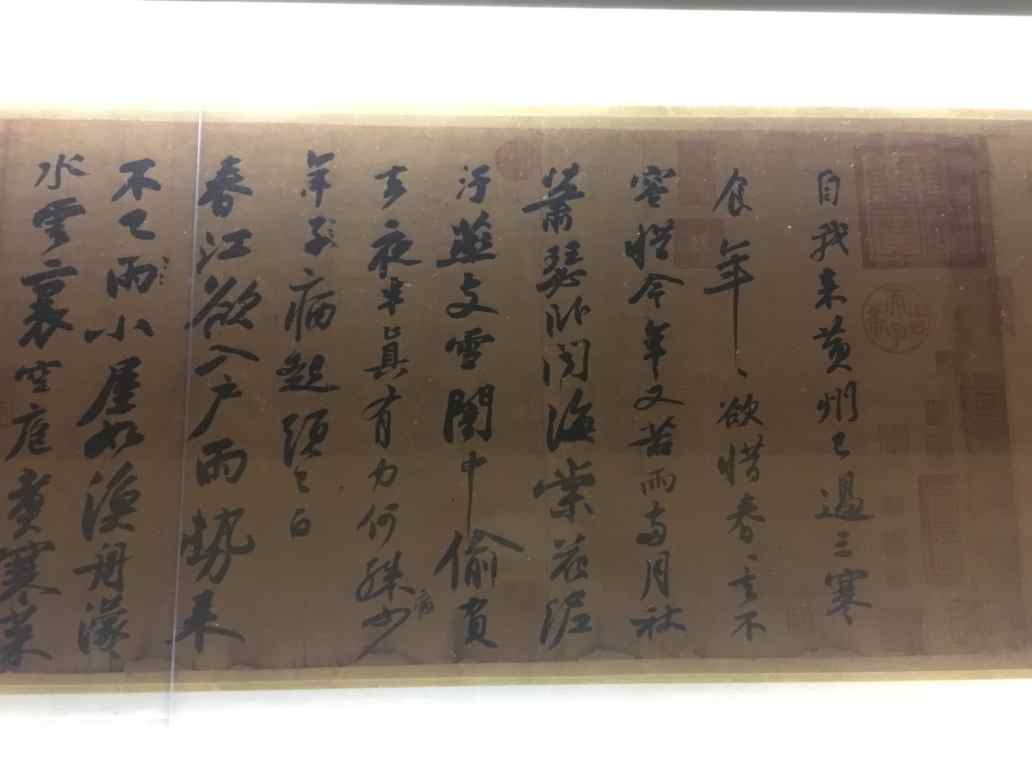 自我來黃州已過三寒
食年〻欲惜春〻去不
容惜今年又苦雨兩月秋
蕭瑟臥聞海棠花泥
汙燕支雪闇中偷負
去夜半真有力何殊少
病
年子病起頭已白
春江欲入戶雨勢來
不已雨小屋如漁舟濛〻
水雲裏空庖煮寒菜